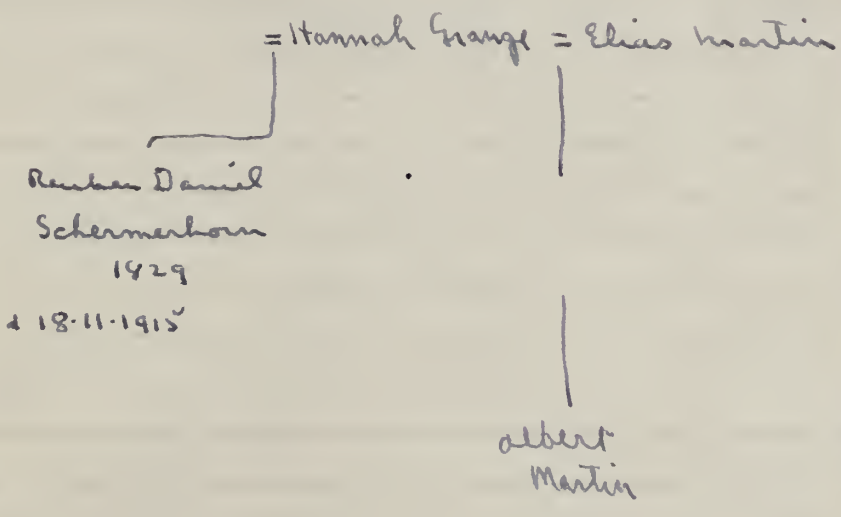 = Hannah Grange = Elias Martin
Reuben Daniel
Schermerhorn
1829
d 18.11.1915
albert
Martin